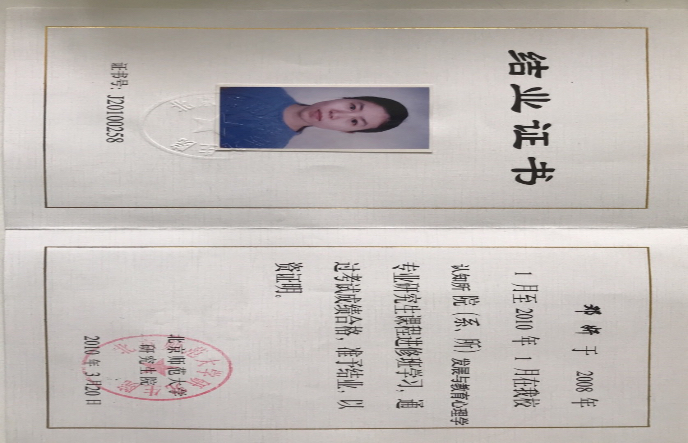 结业证书
证书号: J20100258
于 2008 年
1 月至 2010 年 1 月在我校
认知所 院（系、所）发展与教育心理学
专业研究生课程进修班学习，通
过考试成绩合格，准予结业，以
资证明。
北京师范大学
研究生院
2010 年 3 月20日